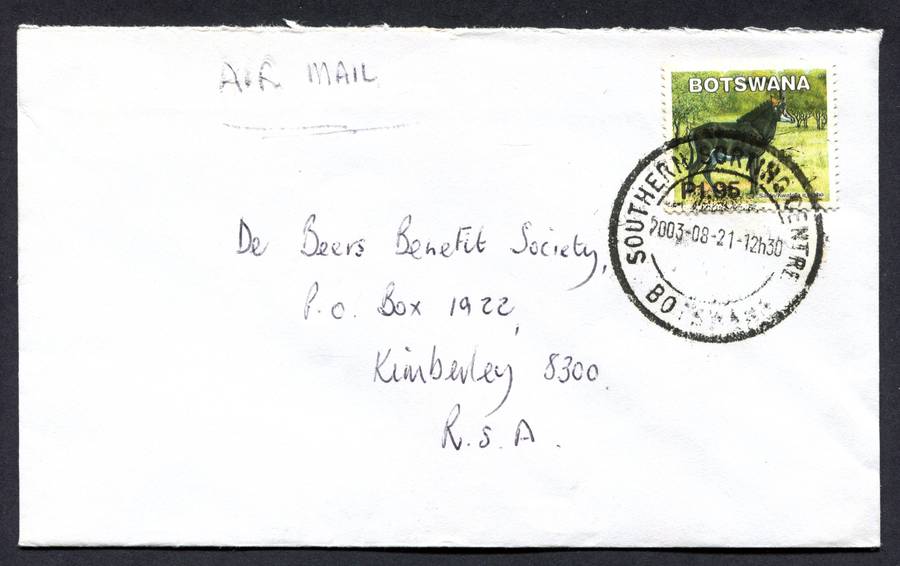 AIR MAIL
BOTSWANA
P1.95
SOUTHERN SORTING CENTRE
2003-08-21-12h30
BOTSWANA
De Beers Benefit Society,
P.O. Box 1922,
Kimberley 8300.
R.S.A.